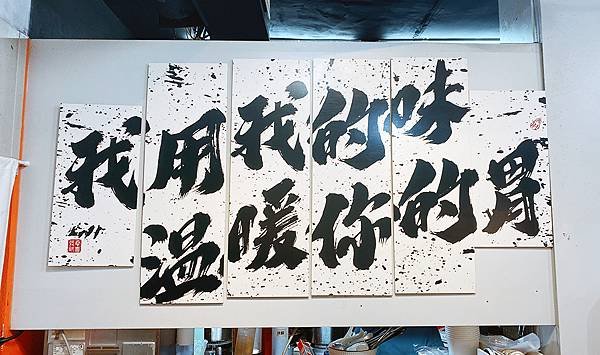 我用我的味
溫暖你的胃